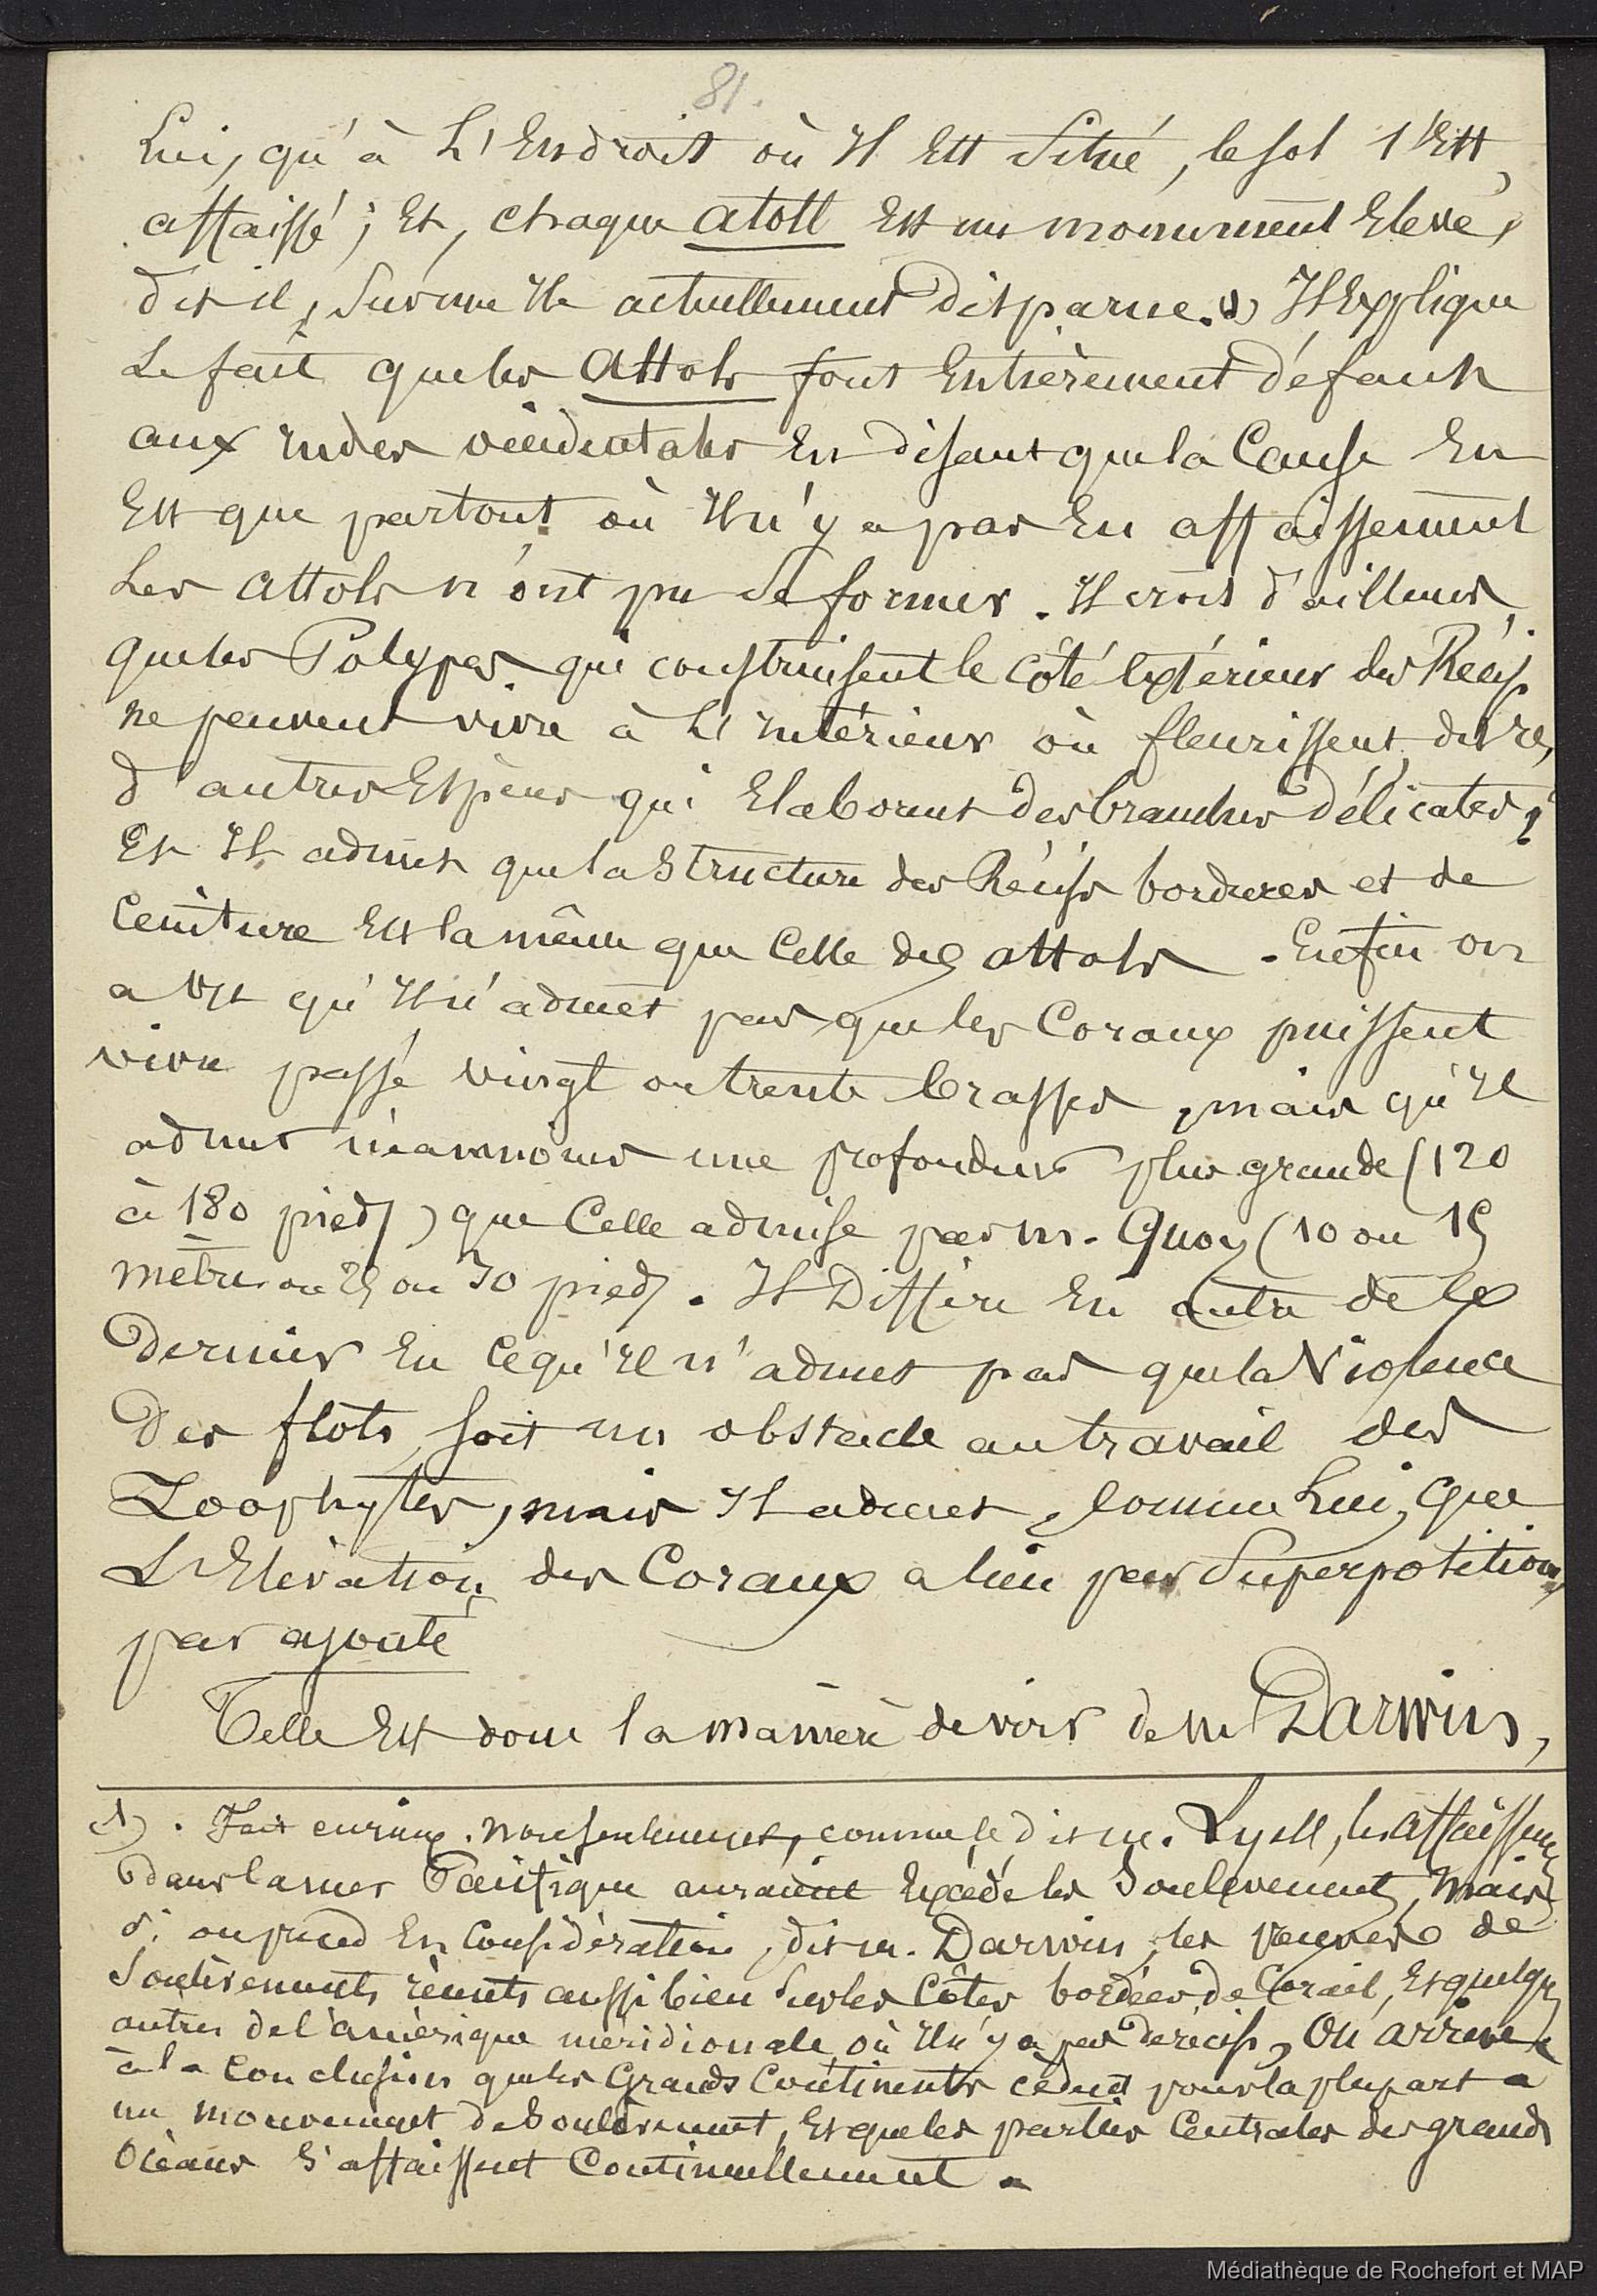 81.
Lui, qu'à L'Endroit où Il Est Situé, le sol s'Est
affaissé; Et, chaque atoll Est un monument Elevé,
dit-il, Sur une Ile actuellement Disparue. (1) Il Explique
Le fait que les Attols font Entièrement défaut
aux Indes occidentales En disant que la Cause En
Est que partout où Il n'y a pas Eu affaissement
Les Attols n'ont pu Se former. Il croit d'ailleurs
que les Polypes qui construisent le Côté Extérieur des Récifs
ne peuvent vivre à L'Intérieur où fleurissent, dit-Il,
d'autres Espèces qui Elaborent des branches délicates;
Et Il admet que la Structure des Récifs bordures et de
Ceinture Est la même que Celle des attols. Enfin on
a vu qu'Il n'admet pas que les Coraux puissent
vivre passé vingt ou trente brasses, mais qu'Il
admet néanmoins une profondeur plus grande (120
à 180 pieds) que Celle admise par m. Quoy (10 ou 15
mètres ou 25 ou 30 pieds. Il Diffère En outre de Ce
Dernier En Ce qu'Il n'admet pas que la Violence
Des flots soit un obstacle au travail des
Zoophytes, mais Il admet, Comme Lui, que
L'Elévation des Coraux a lieu par Superposition,
par ajouté
Telle Est donc la manière de voir de m Darwin,
(1). Fait curieux. Non seulement, comme le dit m. Lyell, les Affaissem
dans la mer Pacifique auraient Excédé les Soulèvements, Mais
si on prend En Considération, dit m. Darwin, les preuves de
Soulèvements récents aussi bien Sur les Côtes bordées de Corail, Et quelques
autres de l'amérique méridionale où Il n'y a pas de récifs, On arrive
à la Conclusion que les Grands Continents cèdent pour la plupart à
un mouvement de Soulèvement, Et que les parties Centrales des grands
Océans S'affaissent Continuellement.
Médiathèque de Rochefort et MAP